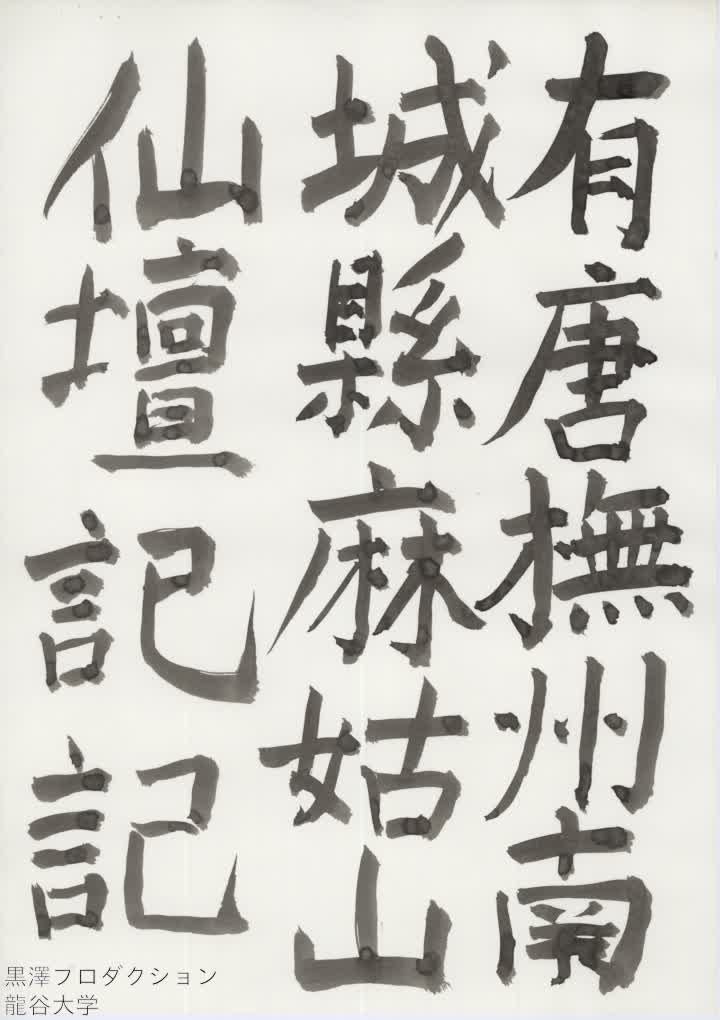 有唐撫州南
城縣麻姑山
仙壇記記
黒澤プロダクション
龍谷大学